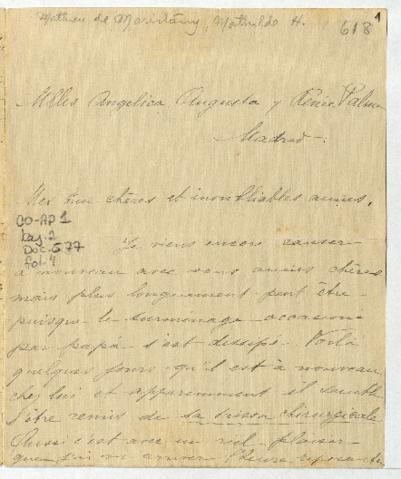 Matheu de Maristany, Mathilde H.
618
1
Mlles Angélica, Augusta y Renée Palma
Madrid
Mes chères et inoubliables amies,
CO-AP 1
Caj. 2
Doc. 577
fol. 4
Je viens encore causer
à nouveau avec vous amies chères
mais plus longuement peut être
puisque le surménage occasionné
par papa s'est dissipé. Voilà
quelques jours qu'il est à nouveau
chez lui et apparemment il semble
s'être remis de sa chirurgicale
Aussi c'est avec un réel plaisir
que j'ai vu arriver l'heure